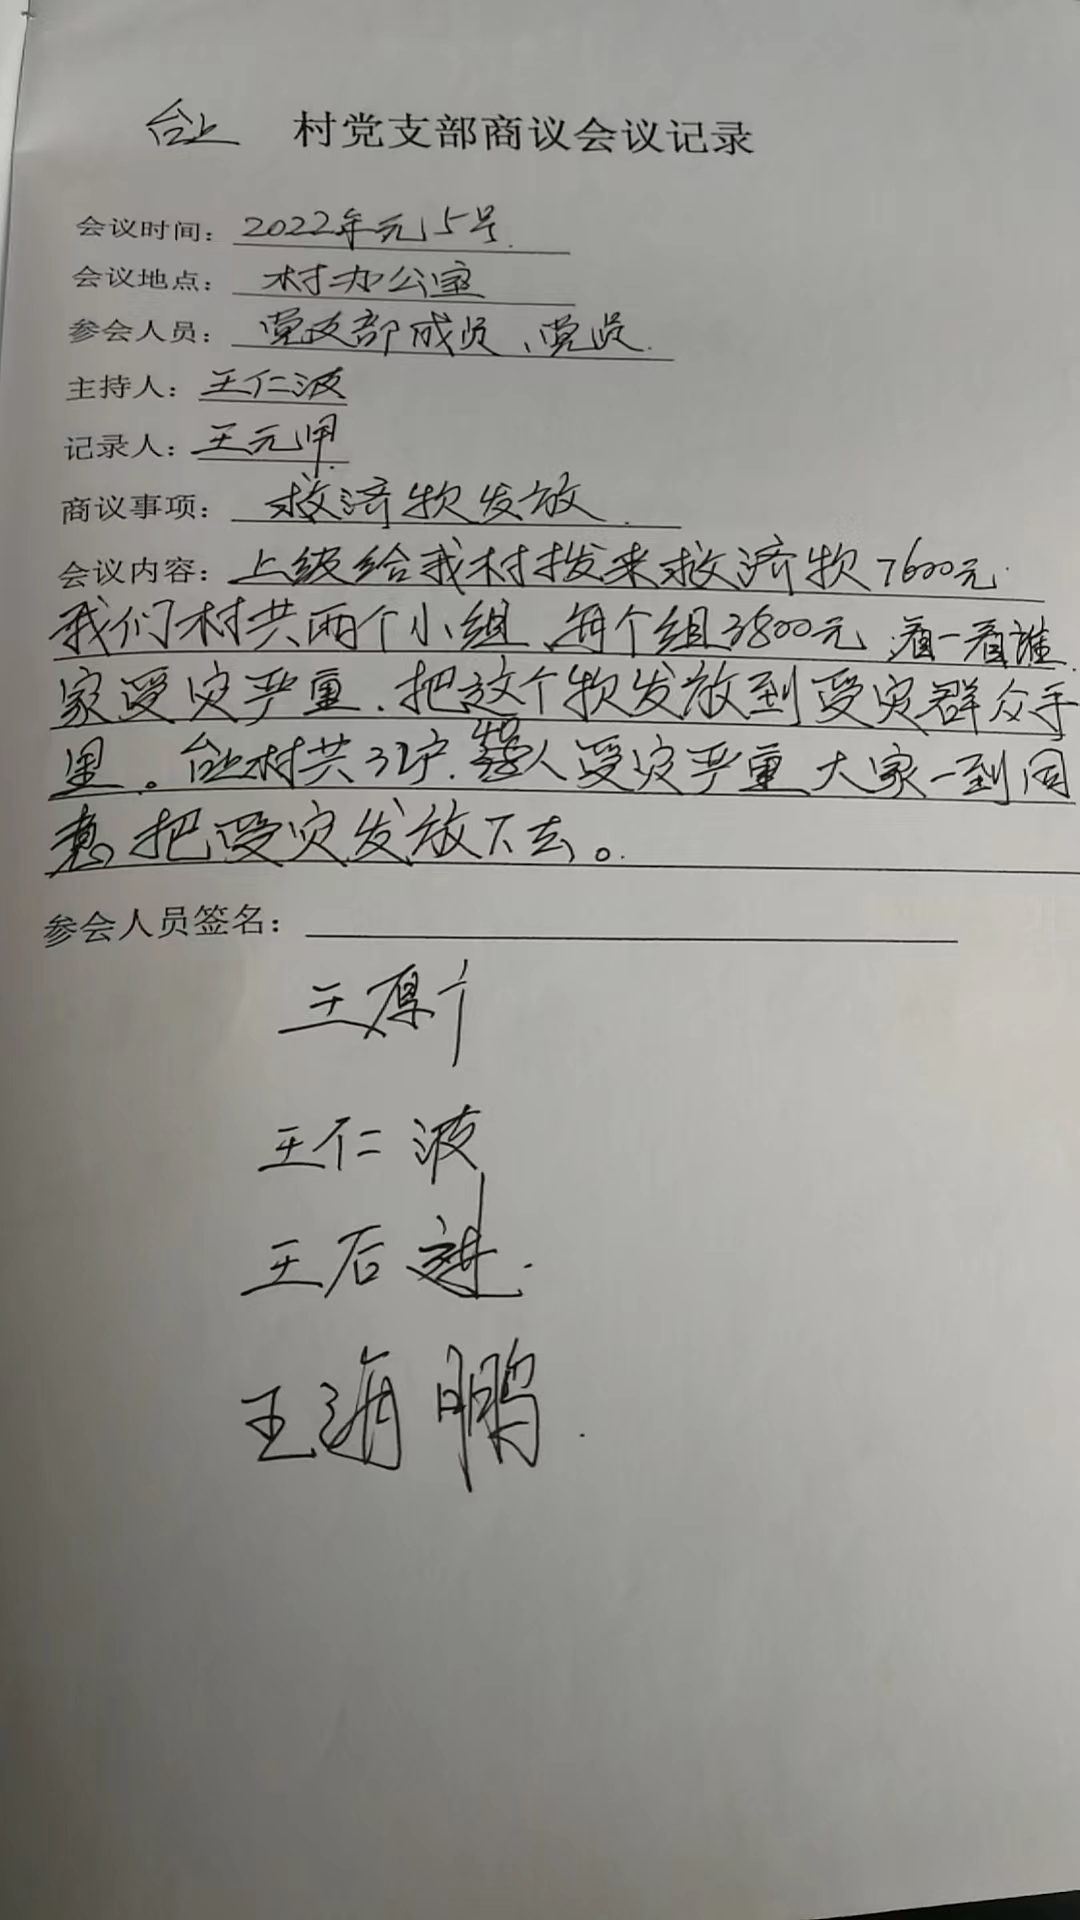 台上 村党支部商议会议记录
会议时间：2022年元15号.
会议地点：村办公室
参会人员：党支部成员、党员.
主持人：王仁波
记录人：王元甲
商议事项：救济物发放.
会议内容：上级给我村拨来救济物7600元.
我们村共两个小组、每个组3800元.看一看谁
家受灾严重、把这个物发放到受灾群众手
里。台上村共32户.人受灾严重 大家一到同
意 把受灾发放下去。
参会人员签名：
王厚
王仁波
王后进.
王海鹏.